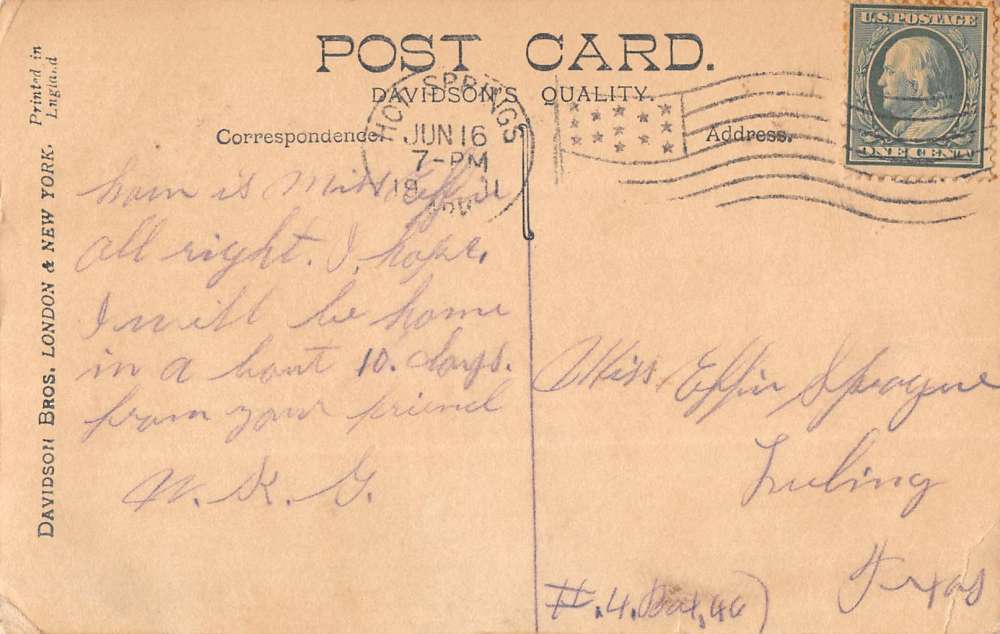 POST CARD.
DAVIDSON'S QUALITY.
Correspondence.
Address.
U.S. POSTAGE
ONE CENT
HOT SPRINGS
JUN 16
7-PM
19 11
ARK
Printed in
England
DAVIDSON BROS. LONDON & NEW YORK.
how is Miss Effie
all right. I hope.
I will be home
in a bout 10. days.
from your friend
W. K. G.
Miss Effie Sprague
Luling
Texas
#.4. Box, 46